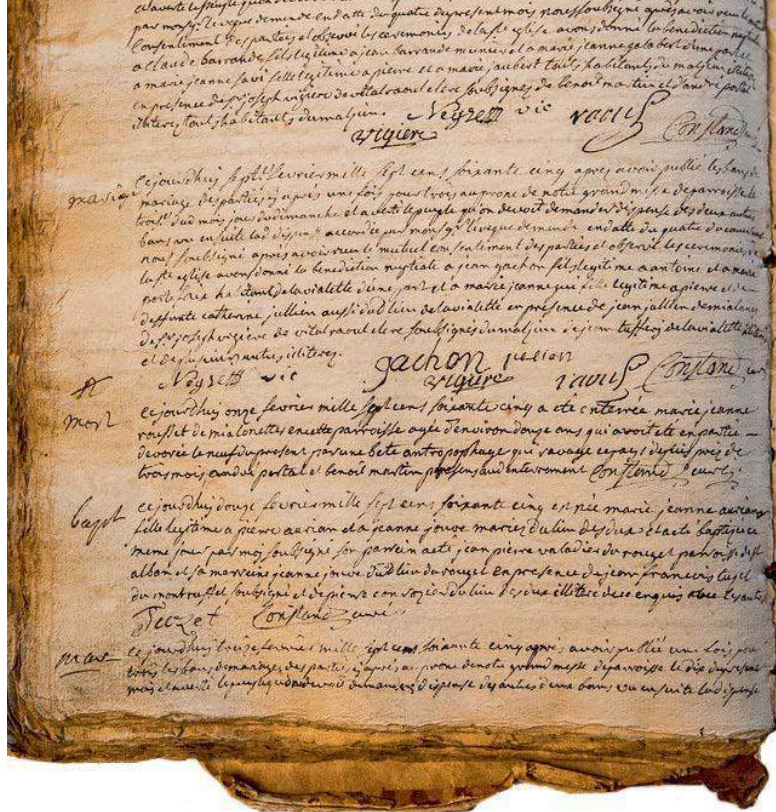 par monsg.r l'eveque de mende en datte du quatre du present mois nous soussigné apres avoir receu le mutuel
consentement des parties et observé les ceremonies de la ste eglise avons donné la benediction nuptiale
a claude barrande fils legitime a jean barrande meunier et a marie jeanne galabert d'une part et
a marie jeanne savi fille legitime a pierre et a marie jaubert tous habitants du malzieu
en presence de sr joseph vigiere de vital raoul clerc soubsignes de benoit martin et d'andré portal
illiteres tous habitants du malzieu. Neyrett vic raoul
vigiere Constand
mariage ce jourdhuy sept.e fevrier mille sept cens soixante cinq apres avoir publié les bans de
mariage des parties cy apres une fois pour trois au prone de notre grand messe de parroisse le
trois.e dud mois jour du dimanche et averti le peuple qu'on devoit demander dispense des deux autres
bans vu en suite lad dispense accordée par monsg.r l'eveque de mende en datte du quatre du courant
nous soubsigné apres avoir receu le mutuel consentement des parties et observé les ceremonies de
la ste eglise avons donné la benediction nuptiale a jean gachon fils legitime a antoine et a marie
portefaix habitant de la vialette d'une part et a marie jeanne que fille legitime a pierre et de
deffunte catherine jullien aussi dud lieu de la vialette en presence de jean jallien de mialanes
de sr joseph vigiere de vital raoul clerc soubsignés du malzieu de jean de la vialette
et de illiterez. gachon julien
Neyrett vic vigiere raoul Constand curé
mort ce jourdhuy onze fevrier mille sept cens soixante cinq a eté enterrée marie jeanne
rousset de mialonettes en cette parroisse agée d'environ douze ans qui avoit eté en partie
devorée le neuf du present par une bete antropophage qui ravage ce pays depuis près de
trois mois andré portal et benoit martin presens aud enterrement Constand curé
bapt ce jourdhuy douze fevrier mille sept cens soixante cinq est née marie jeanne aurian
fille legitime a pierre aurian et a jeanne jouve mariés du lieu des dux et a eté baptisée ce
meme jour par moy soubsigné son parrein a eté jean pierre valadier du rouget parroisse de st
alban et sa marreine jeanne jouve du d lieu du rouget en presence de jean francois tuzet
du montruffet soubsigné et de pierre du lieu des dux illiteré de ce enquis avec
Teuzet Constand curé
mar ce jourdhuy treize fevrier mille sept cens soixante cinq apres avoir publié une fois pour
trois les bans de mariage des parties cy apres au prone de notre grand messe de parroisse le dix du present
mois et averti le peuple qu'on devoit demander dispense des autres deux bans vu en suite lad dispense